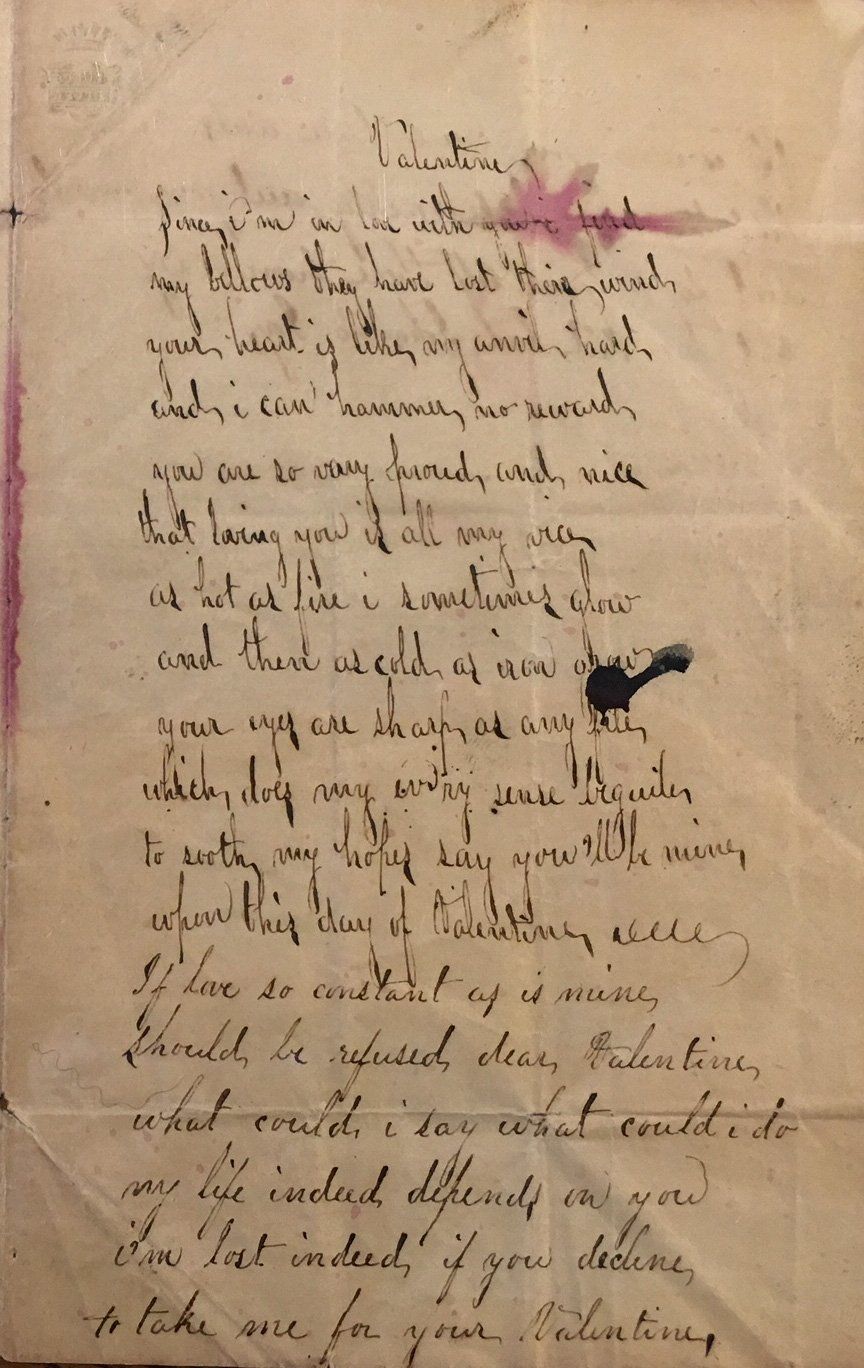 Valentine
Since i'm in love with you i find
my bellows they have lost there wind
your heart is like my anvil hard
and i can hammer no reward
you are so vary proud and nice
that loving you is all my vice
as hot as fire i sometimes glow
and then as cold as iron grow
your eyes are sharp as any file
which does my every sense beguile
to sooth my hopes say you'll be mine
upon this day of Valentine
If love so constant as is mine
should be refused dear Valentine
what could i say what could i do
my life indeed depends on you
i'm lost indeed if you decline
to take me for your Valentine,